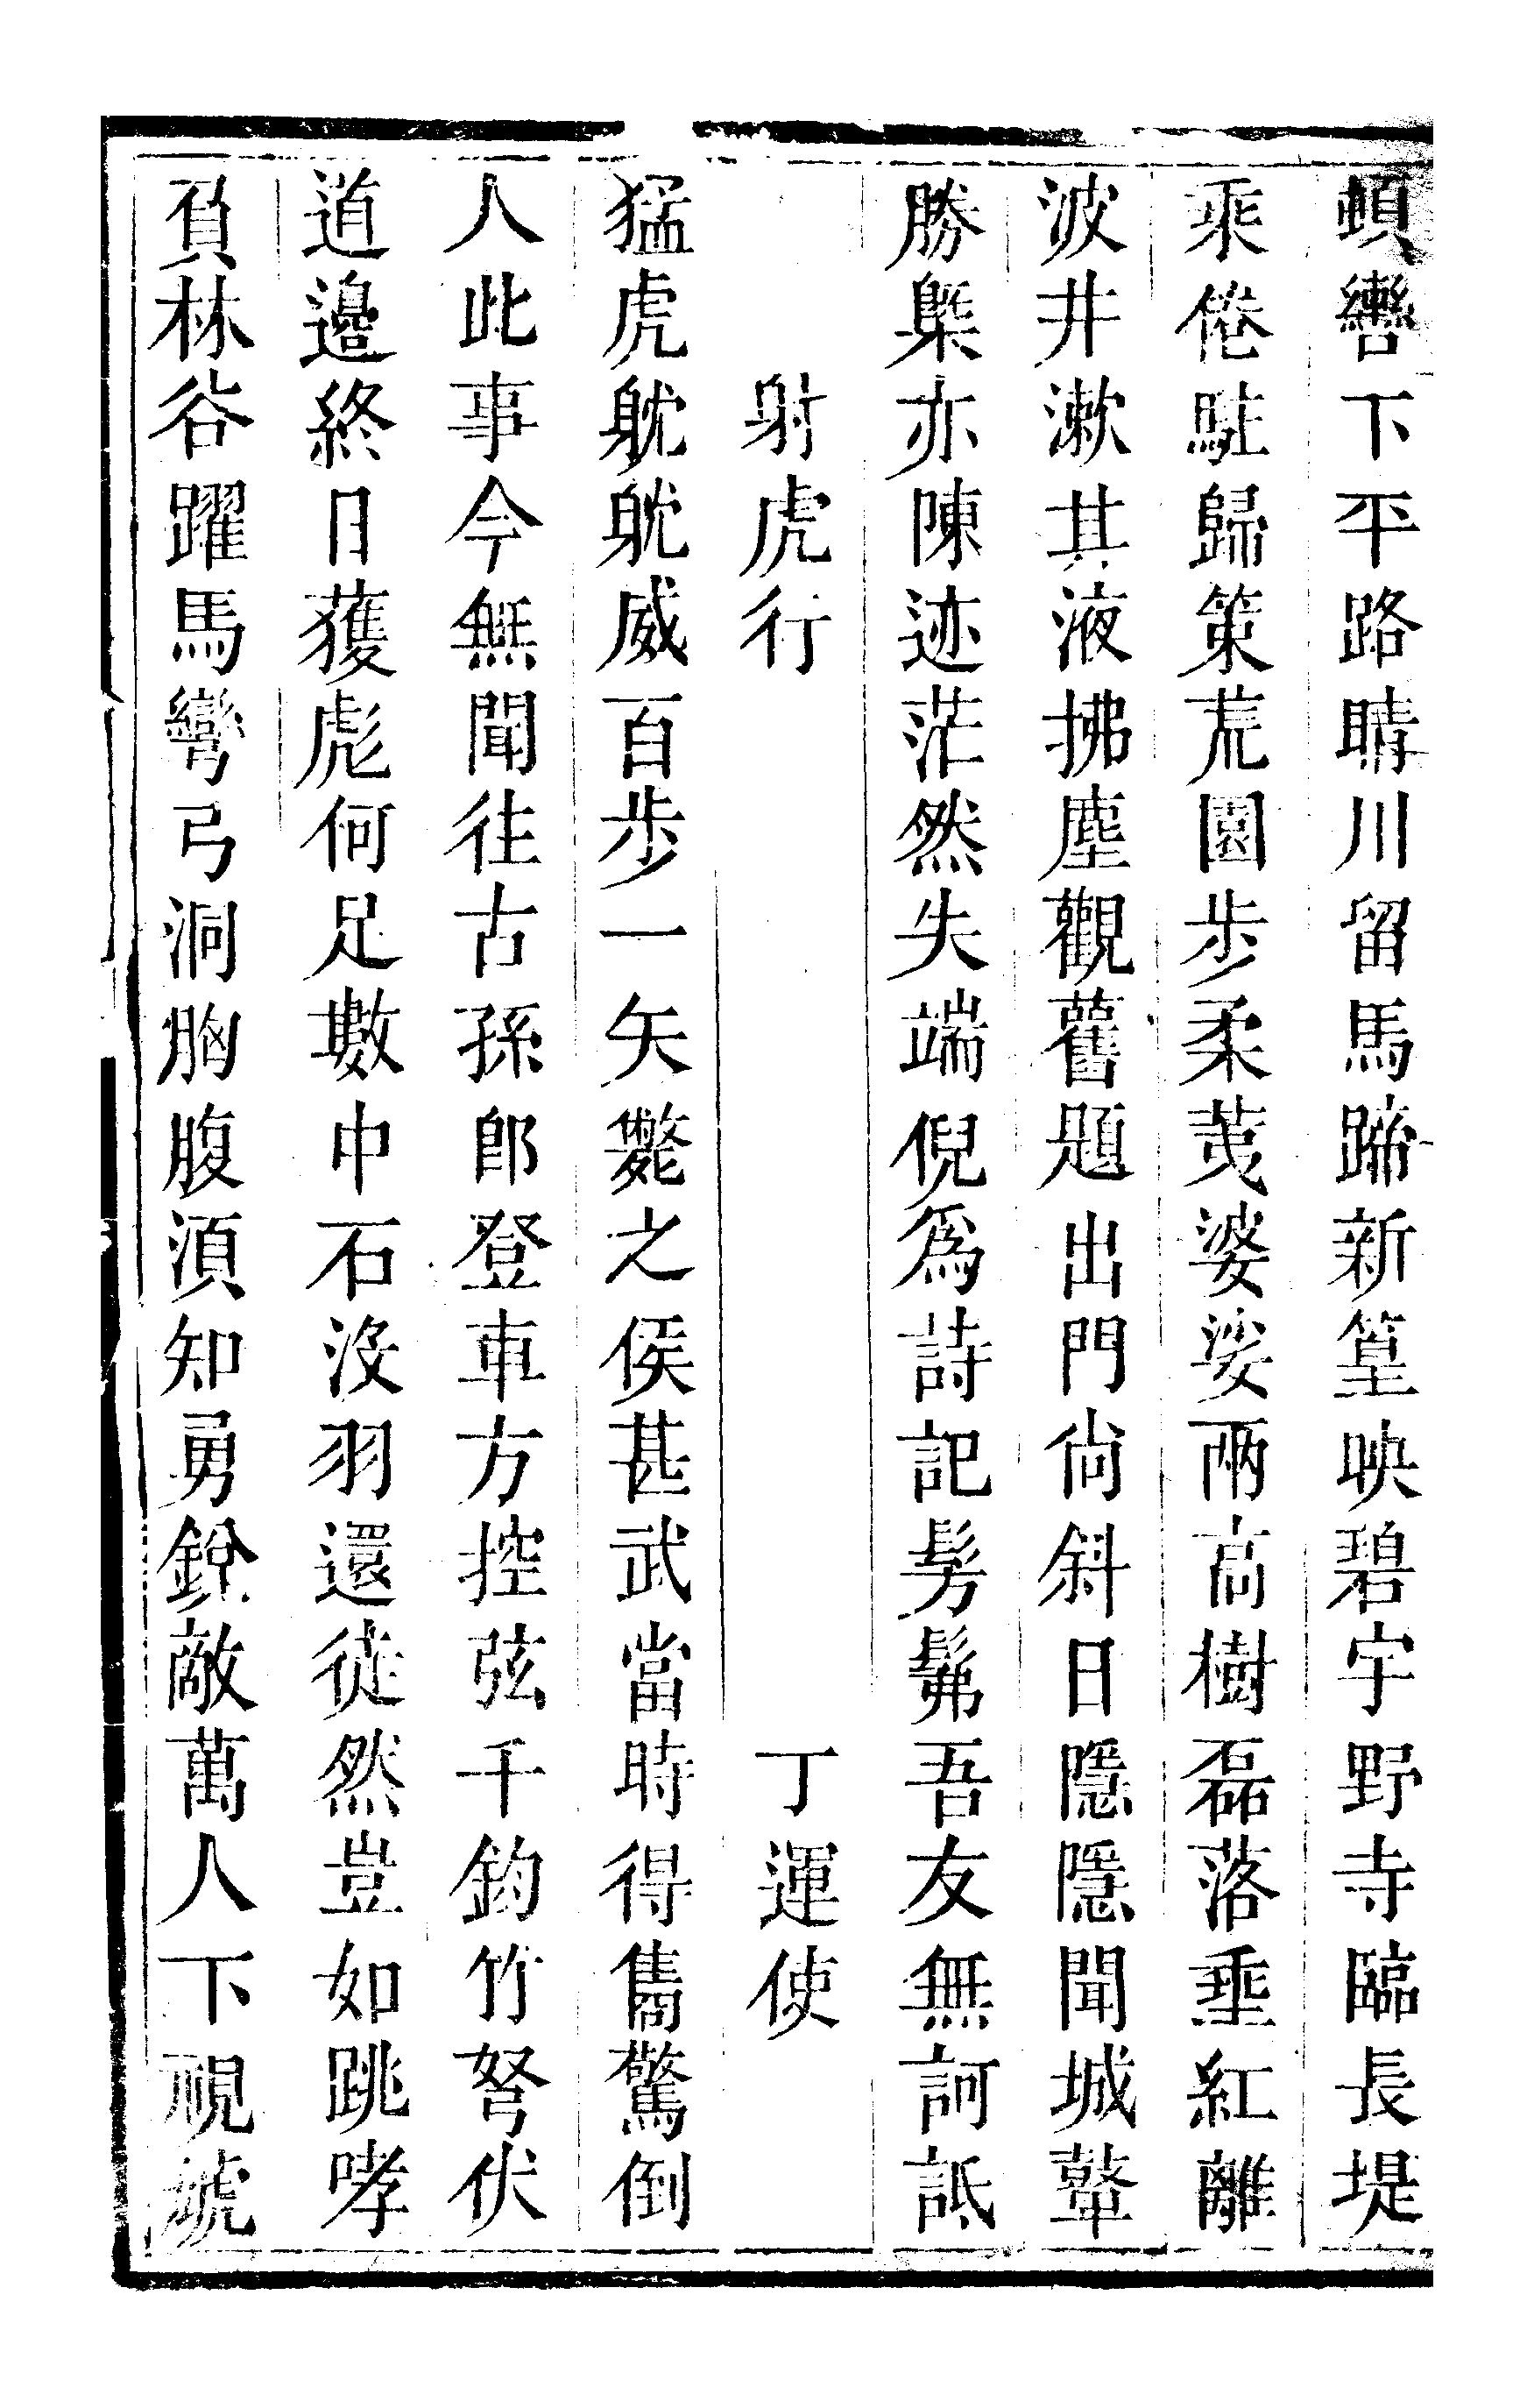 頓轡下平路晴川留馬蹄新篁映碧宇野寺臨長堤
乘倦駐歸策荒園步柔荑婆娑兩高樹磊落垂紅離
波井漱其液拂塵觀舊題出門尙斜日隱隱聞城鼙
勝槩亦陳迹茫然失端倪爲詩記髣髴吾友無訶詆
射虎行 丁運使
猛虎躭躭威百步一矢斃之侯甚武當時得雋驚倒
人此事今無聞往古孫郎登車方控弦千鈞竹弩伏
道邊終日獲彪何足數中石沒羽還徒然豈如跳哮
負林谷躍馬彎弓洞胸腹須知勇銳敵萬人下視虓